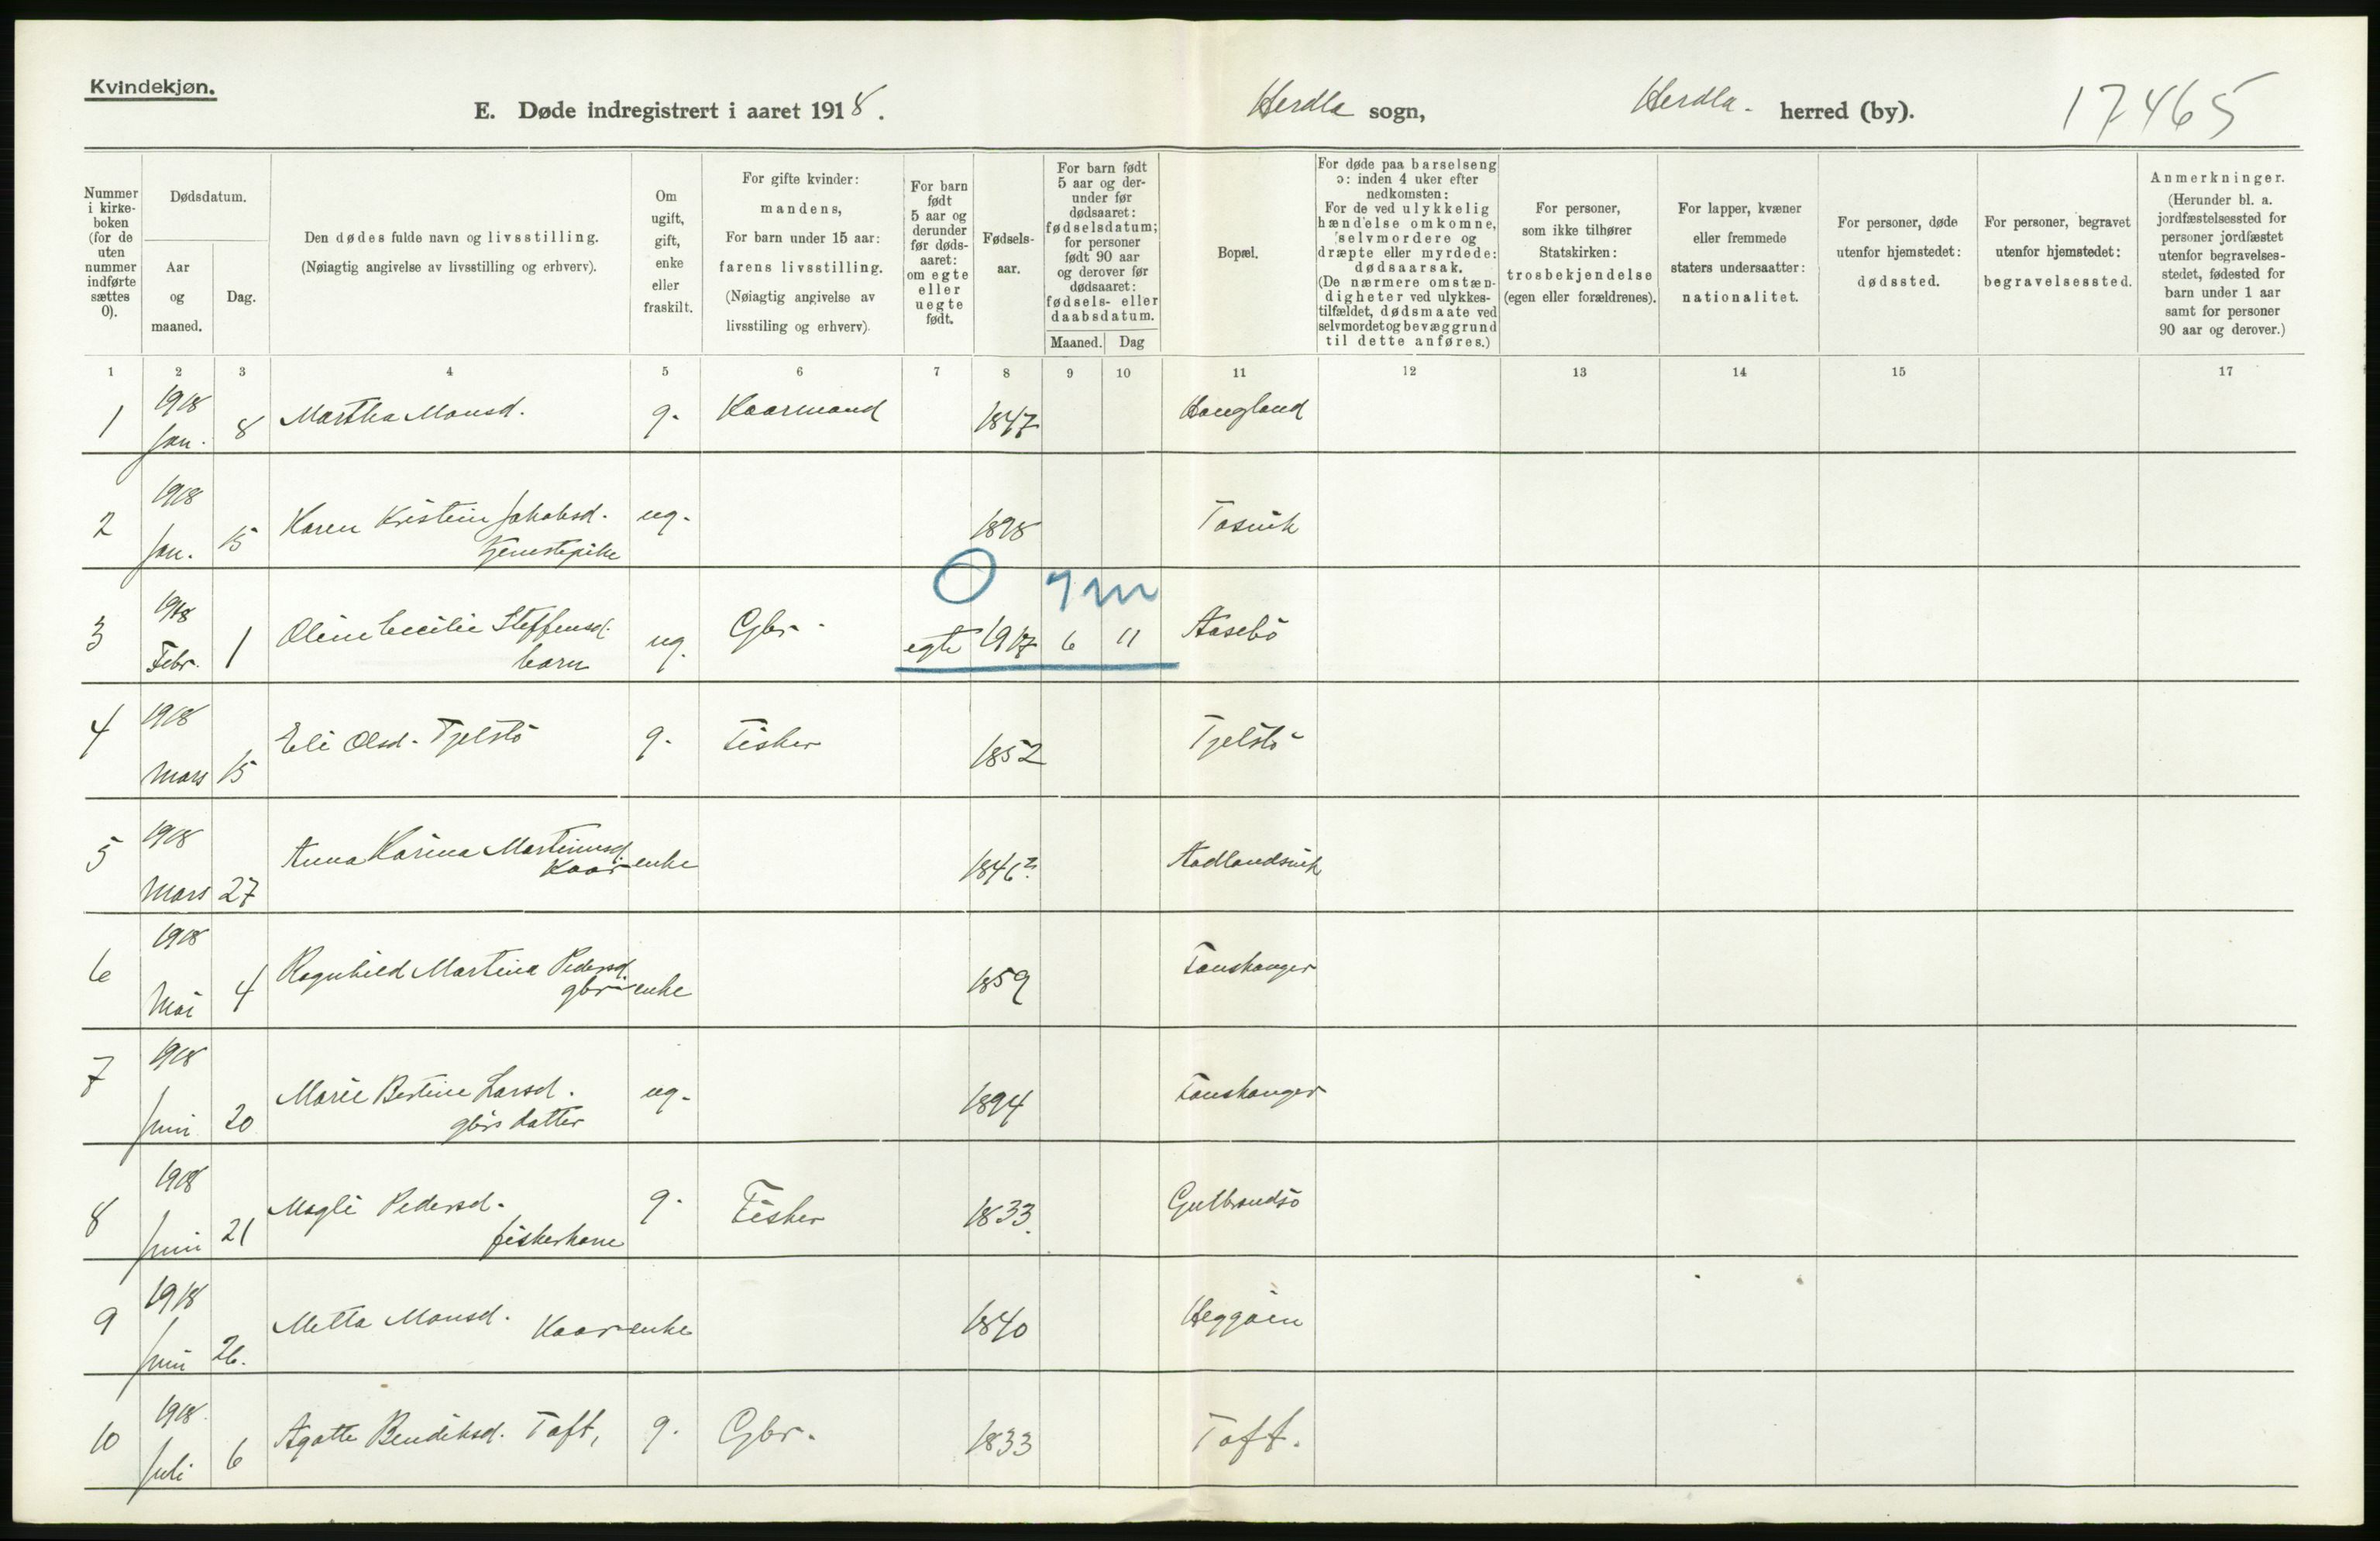 Kvindekjøn.
E. Døde indregistrert i aaret 1918.
Herdla sogn,
Herdla. herred (by).
17465
Nummer
i kirke-
boken
(for de
uten
nummer
indførte
sættes
0).
Dødsdatum.
Aar
og
maaned.
Dag.
Den dødes fulde navn og livsstilling.
(Nøiagtig angivelse av livsstilling og erhverv).
Om
ugift,
gift,
enke
eller
fraskilt.
For gifte kvinder:
mandens,
For barn under 15 aar:
farens livsstilling.
(Nøiagtig angivelse av
livsstiling og erhverv).
For barn
født
5 aar og
derunder
før døds-
aaret:
om egte
eller
uegte
født.
Fødsels-
aar.
For barn født
5 aar og der-
under før
dødsaaret:
fødselsdatum;
for personer
født 90 aar
og derover før
dødsaaret:
fødsels- eller
daabsdatum.
Maaned. Dag
Bopæl.
For døde paa barselseng
ɔ: inden 4 uker efter
nedkomsten:
For de ved ulykkelig
hændelse omkomne,
selvmordere og
dræpte eller myrdede:
dødsaarsak.
(De nærmere omstæn-
digheter ved ulykkes-
tilfældet, dødsmaate ved
selvmordet og bevæggrund
til dette anføres.)
For personer,
som ikke tilhører
Statskirken:
trosbekjendelse
(egen eller forældrenes).
For lapper, kvæner
eller fremmede
staters undersaatter:
nationalitet.
For personer, døde
utenfor hjemstedet:
dødssted.
For personer, begravet
utenfor hjemstedet:
begravelsessted.
Anmerkninger.
(Herunder bl. a.
jordfæstelsessted for
personer jordfæstet
utenfor begravelses-
stedet, fødested for
barn under 1 aar
samt for personer
90 aar og derover.)
1 2 3 4 5 6 7 8 9 10 11 12 13 14 15 17
1 1918 Jan. 8 Martha Monsd. g. Kaarmand 1847 Haugland
2 1918 Jan. 15 Karen Kristine Jakobsd. ug. 1898 Tosvik
tjenestepike
0 7 m
3 1918 Febr. 1 Oline Cecilie Steffensd. ug. Gbr. egte 1917 6 11 Aasebö
barn
4 1918 Mars 15 Eli Olsd. Tjelstö g. Fisker 1852 Tjelstö
5 1918 Mars 27 Anna Karina Martinusd. 1846? Aadlandsvik
Kaarenke
6 1918 Mai 4 Ragnhild Martina Pedersd. 1859 Fauskanger
gbr-enke
7 1918 Juni 20 Marie Bertine Larsd. ug. 1894 Fauskanger
gbrs datter
8 1918 Juni 21 Magli Pedersd. g. Fisker 1833. Gulbrandsö
fiskerkone
9 1918 Juni 26. Metta Monsd. Kaarenke 1840 Heggöen
10 1918. Juli 6 Agatte Bendiksd. Toft, g. Gbr. 1833 Toft.